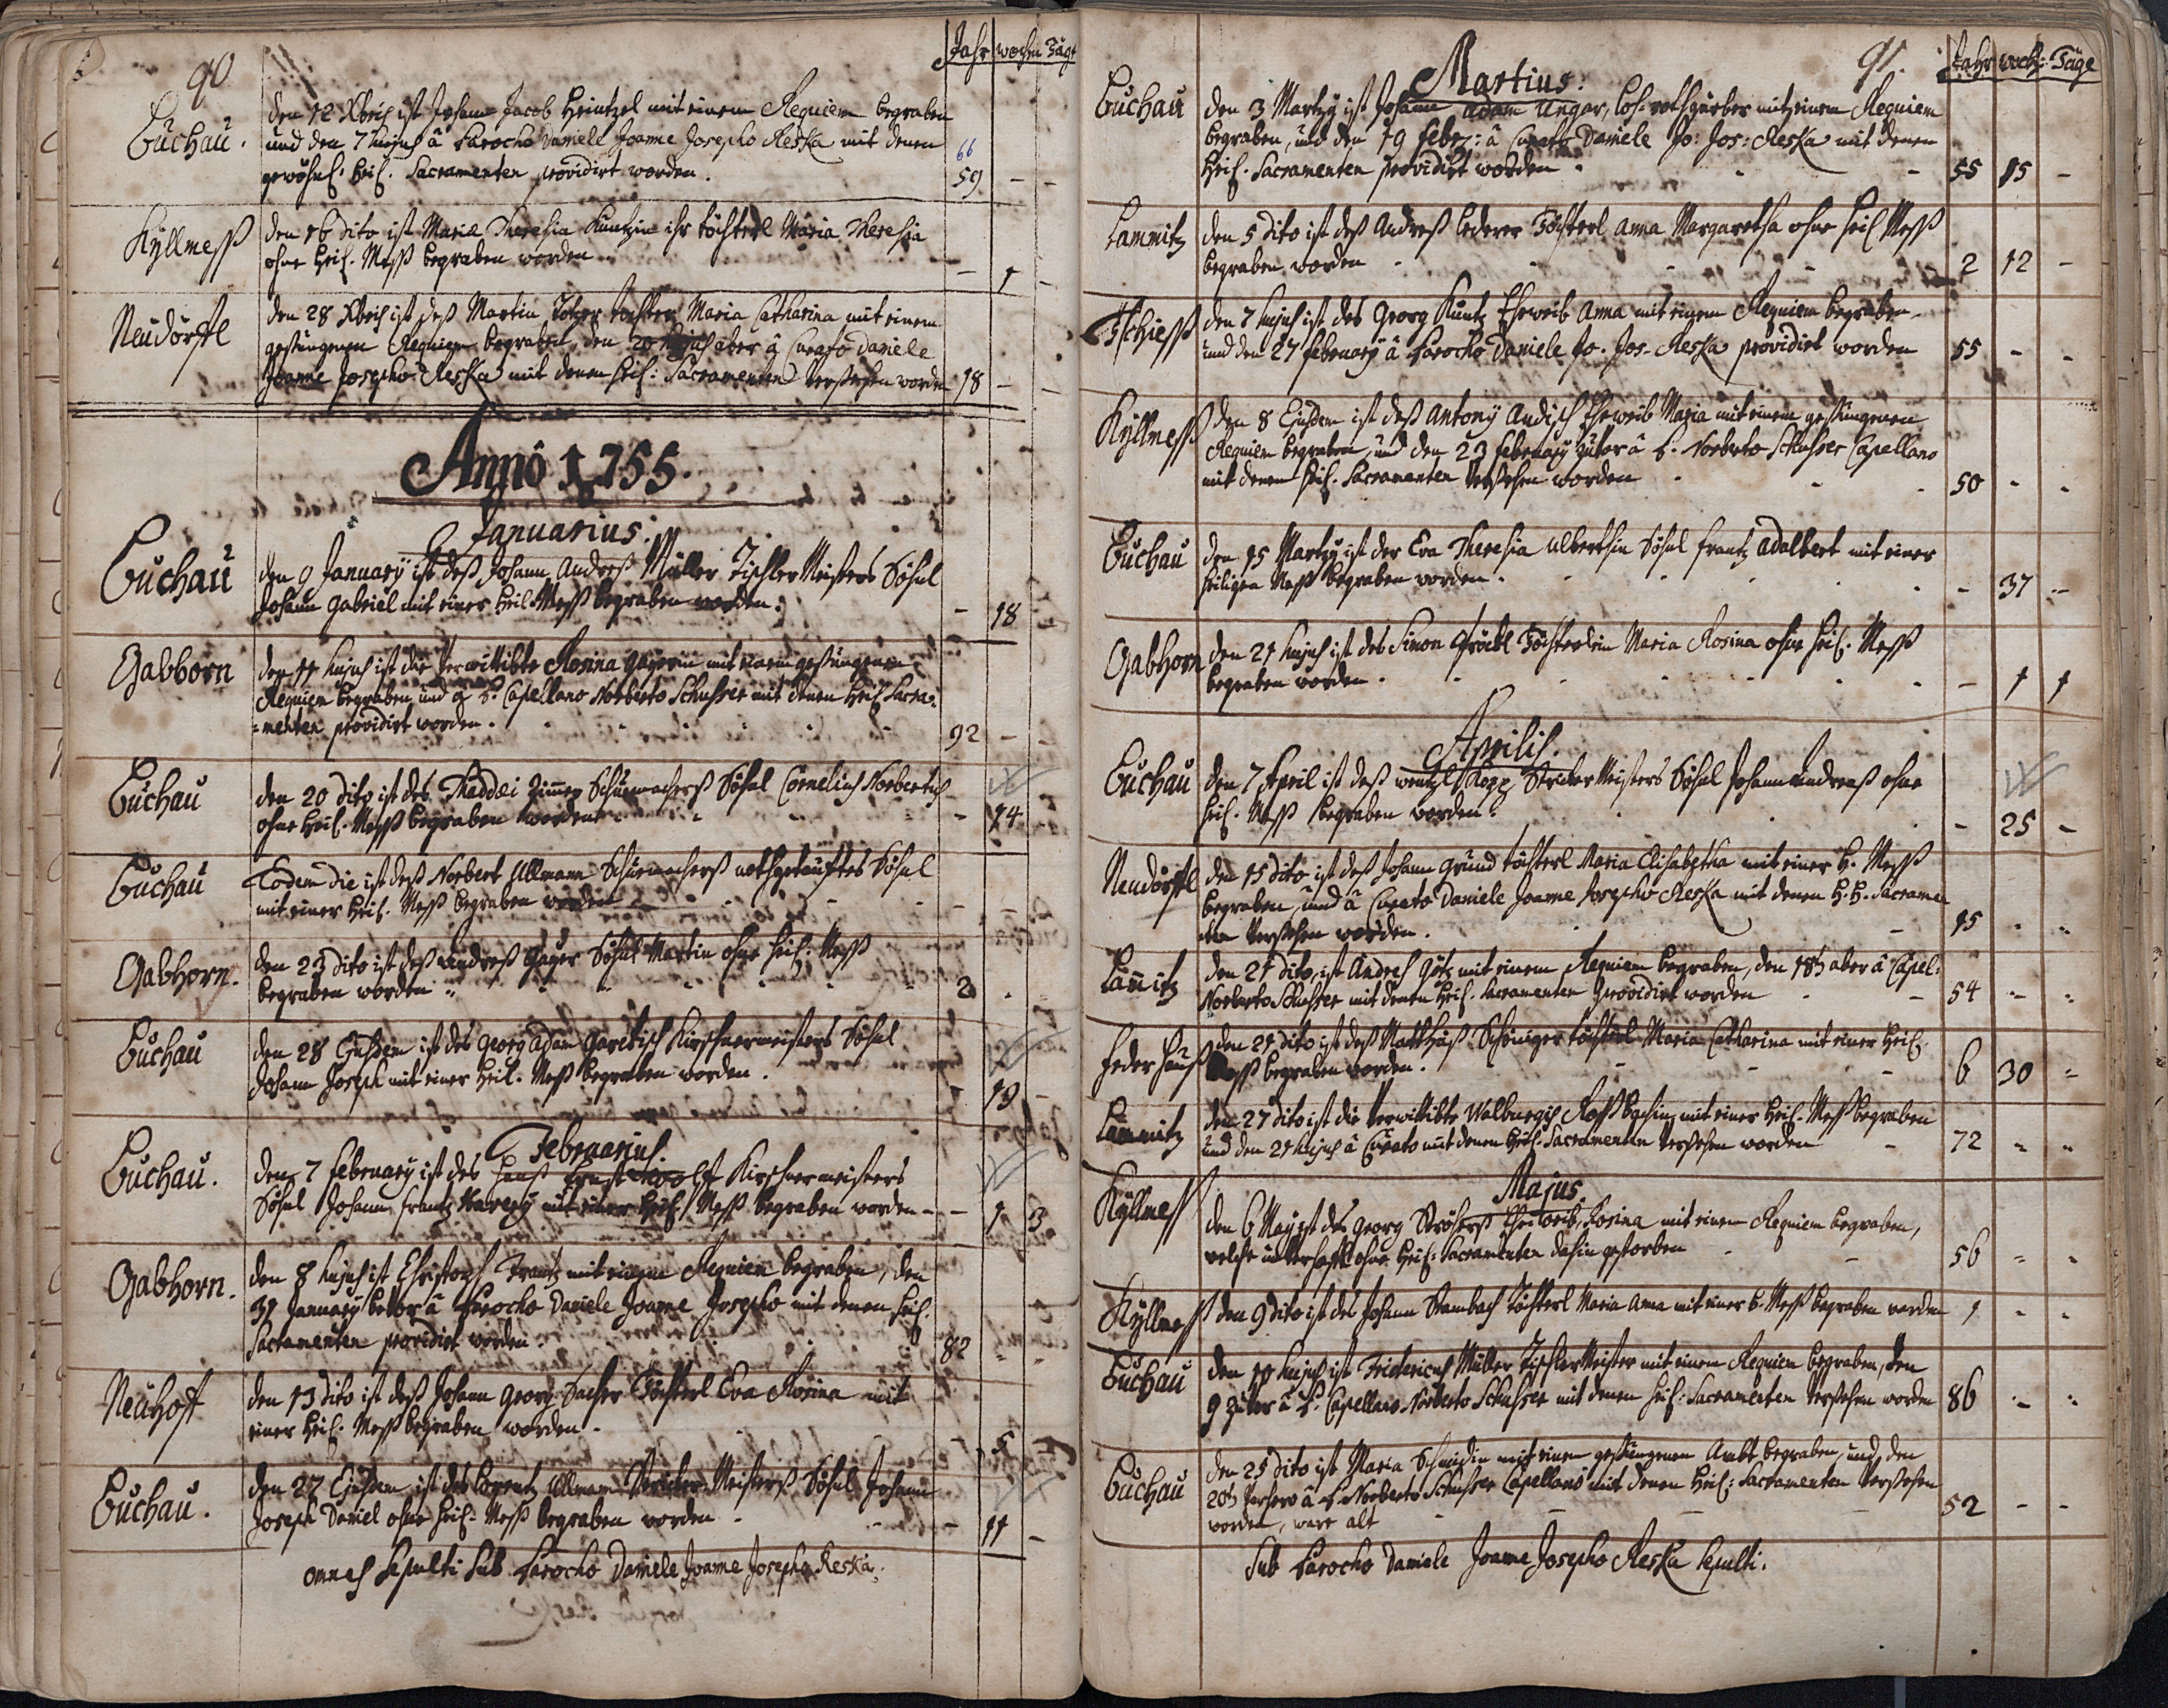 90
Jahr wochen Täge
Buchau. den 12 Xbris ist Johann Jacob Heintzel mit einem Requiem begraben
und den 7 hujus â Parocho Daniele Joanne Josepho Reska mit denen
gewöhnl. heil. Sacramenten providirt worden. 66 59 - -
Kyllmeß den 16 dito ist Mariæ Theresia Kuntzin ihr töchterl Maria Theresia
ohne heil. Meß begraben worden - 1 -
Neudörfl den 28 Xbris ist deß Martin tochter Maria Catharina mit einem
gesungenen Requiem begraben, den 20 hujus aber â Curato Daniele
Joanne Josepho Reska mit denen heil: Sacramenten versehen worden 18 - -
Annô 1755.
Januarius:
Buchau den 9 January ist deß Johann Andreß Müller Tischler Meisters Söhnl
Johann Gabriel mit einer heil. Meß begraben worden. - 18 -
Gabhorn den 11 hujus ist die verwittibte Rosina Gäyerin mit einem gesungenem
Requiem begraben und â P. Capellano Norberto Schusser mit denen heil Sacra=
=menten providirt worden. 92 - -
Buchau den 20 dito ist des Thaddæi Zimmer Schumachers Söhnl Cornelius Norbertus
ohne heil. Meß begraben worden - 14 -
Buchau Eodem die ist deß Norbert Ullmann Schumachers nothgetauftes Söhnl
mit einer heil. Meß begraben worden - - -
Gabhorn. den 23 dito ist deß Andreß Gäyer Söhnl Martin ohne heil. Meß
begraben worden 2 - -
Buchau den 28 Ejusdem ist des Georg Adam Kirschnermeisters Söhnl
Johann Joseph mit einer heil. Meß begraben worden. - 19 -
Februarius.
Buchau. den 7 February ist des Hanß Ernst Woolff Kirschnermeisters
Söhnl Johann Frantz Xavery mit einer heil. Meß begraben worden - - 1 3
Gabhorn. den 8 hujus ist Christoph Frantz mit einem Requiem begraben, den
31 January bevor â Parocho Daniele Joanne Josepho mit denen heil.
Sacramenten providirt worden. 82 - -
Neuhoff den 13 dito ist deß Johann Georg Sacher Töchterl Eva Rosina mit
einer heil. Meß begraben worden. - 5 -
Buchau. den 27 Ejusdem ist des Lorentz Ullmann Stricker Meisters Söhnl Johann
Joseph Daniel ohne heil. Meß begraben worden - 11 -
Omnes Sepulti Sub Parocho Daniele Joanne Josepho Reska.
91.
Jahr woch: Täge
Martius:
Buchau den 3 Marty ist Johann Adam Ungar, Loh-rothgärber mit einem Requiem
begraben, und den 19 Febr: â Curato Daniele Jo: Jos: Reska mit denen
heil. Sacramenten providirt worden - 55 15 -
Lammitz den 5 dito ist deß Andreß Lederer Töchterl Anna Margaretha ohne heil Meß
begraben worden 2 12 -
Tschieß den 7 hujus ist des Georg Kuntz Eheweib Anna mit einem Requiem begraben
und den 27 February â Parocho Daniele Jo. Jos. Reska providirt worden 55 - -
Kyllmeß den 8 Ejusdem ist deß Antony Andisch Eheweib Maria mit einem gesungenen
Requiem begraben, und den 23 February zuvor â P. Norberto Schusser Capellano
mit denen heil. Sacramenten versehen worden 50 - -
Buchau den 15 Marty ist der Eva Theresia Ulbertsin Söhnl Frantz Adalbert mit einer
heiligen Meß begraben worden. - 37 -
Gabhorn den 21 hujus ist des Simon Töchterlein Maria Rosina ohne heil. Meß
begraben worden. - 1 1
Aprilis.
Buchau den 7 April ist deß Wentzl Kopp Stricker Meisters Söhnl Johann Andreaß ohne
heil. Meß begraben worden. - 25 -
Neudörfl den 15 dito ist deß Johann Gründ töchterl Maria Elisabetha mit einer H. Meß
begraben, und â Curato Daniele Joanne Josepho Reska mit denen H.H. Sacramen
ten versehen worden. 15 - -
Lam̄itz den 21 dito, ist Andres Götz mit einem Requiem begraben, den 18t aber â Capel:
Norberto Schusser mit denen heil. Sacramenten providirt worden 54 - -
Federhauß den 21 dito ist deß Matthäß Schöniger töchterl Maria Catharina mit einer heil.
Meß begraben worden. 6 30 -
Lammitz den 27 dito ist die verwittibte Walburgis Roßbachin mit einer heil. Meß begraben
und den 21 hujus â Curato mit denen heil. Sacramenten versehen worden 72 - -
Majus.
Kyllmeß den 6 May ist des Georg Ströhers Eheweib Rosina mit einem Requiem begraben,
welche unverhofft ohne heil: Sacramenten dahin gestorben 56 - -
Kyllmeß den 9 dito ist des Johann Stambach Töchterl Maria Anna mit einer h. Meß begraben worden 1 - -
Buchau den 10 hujus ist Fridericus Müller Tischler Meister mit einem Requiem begraben, den
9 zuvor â P. Capellano Norberto Schusser mit denen heil: Sacramenten versehen worden 86 - -
Buchau den 25 dito ist Maria Schmidin mit einem gesungenen Ambt begraben, und den
20t vorhero â P. Norberto Schusser Capellano mit denen heil: Sacramenten versehen
worden, ware alt 52 - -
Sub Parocho Daniele Joanne Josepho Reska Sepulti.